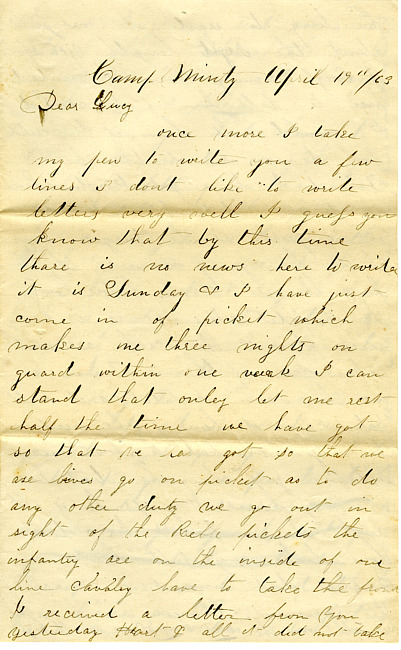 Camp Minty April 19th /63
Dear Lucy
once more I take
my pen to write you a few
lines I dont like to write
letters very well I guess you
know that by this time
thare is no news here to write
it is Sunday & I have just
come in of picket which
makes me three nights on
guard within one week I can
stand that only let me rest
half the time we have got
so that we got so that we
as lives go on picket as to do
any other duty we go out in
sight of the Reble pickets the
infantry are on the inside of our
line have to take the front
I recived a letter from you
yesterday & all it did not take